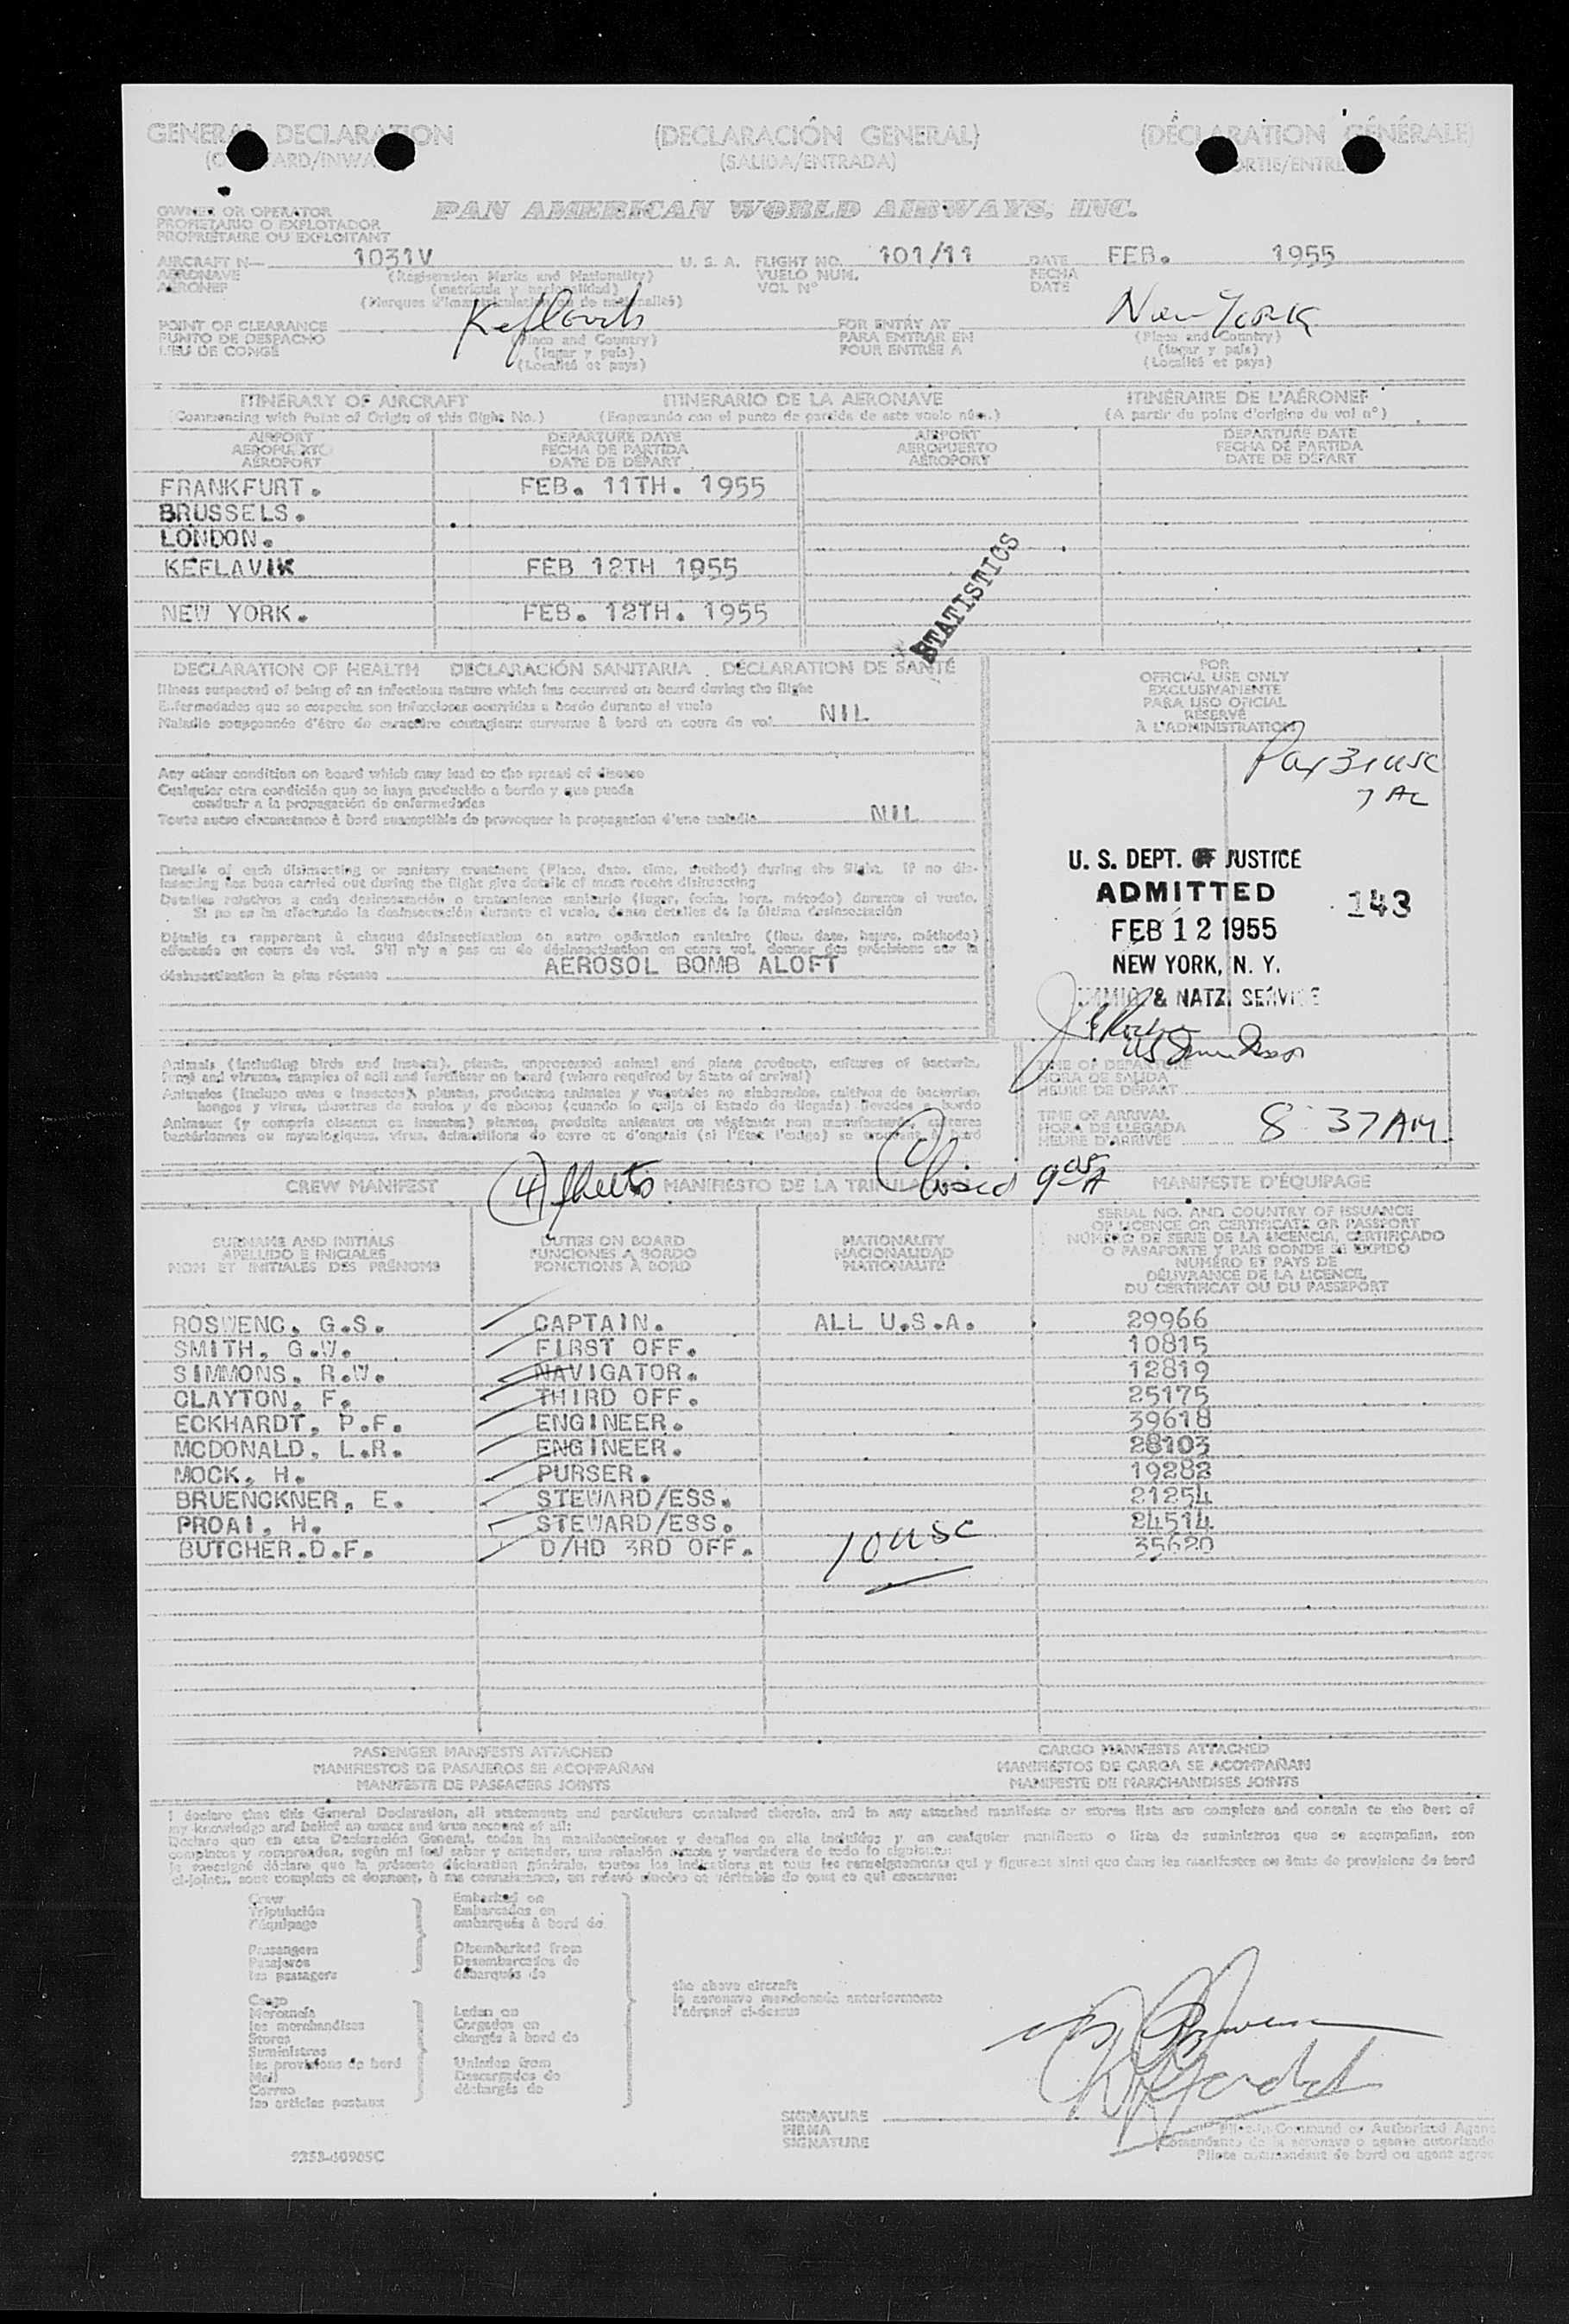 GENERAL DECLARATION
(DECLARACIÓN GENERAL)
(DÉCLARATION GÉNÉRALE)
(SALIDA/ENTRADA)
OWNER OR OPERATOR
PROPIETARIO O EXPLOTADOR
PROPRIÉTAIRE OU EXPLOITANT
PAN AMERICAN WORLD AIRWAYS, INC.
AIRCRAFT N— 1031V U. S. A. FLIGHT NO. 101/11 DATE FEB. 1955
AERONAVE (Registration Marks and Nationality) VUELO NUM. FECHA
AÉRONEF (matrícula y nacionalidad) VOL N° DATE
(Marques d'immatriculation ou de nationalité)
POINT OF CLEARANCE Keflavik FOR ENTRY AT New York
PUNTO DE DESPACHO (Place and Country) PARA ENTRAR EN (Place and Country)
LIEU DE CONGÉ (lugar y país) POUR ENTRÉE A (lugar y país)
(Localité et pays) (Localité et pays)
ITINERARY OF AIRCRAFT ITINERARIO DE LA AERONAVE ITINÉRAIRE DE L'AÉRONEF
(Commencing with Point of Origin of this flight No.) (Empezando con el punto de partida de este vuelo núm.) (A partir du point d'origine du vol n°)
AIRPORT DEPARTURE DATE AIRPORT DEPARTURE DATE
AEROPUERTO FECHA DE PARTIDA AEROPUERTO FECHA DE PARTIDA
AÉROPORT DATE DE DÉPART AÉROPORT DATE DE DÉPART
FRANKFURT. FEB. 11TH. 1955
BRUSSELS.
LONDON.
KEFLAVIK FEB 12TH 1955
NEW YORK. FEB. 12TH. 1955
STATISTICS
DECLARATION OF HEALTH DECLARACIÓN SANITARIA DÉCLARATION DE SANTÉ
Illness suspected of being of an infectious nature which has occurred on board during the flight
Enfermedades que se sospecha son infecciosas ocurridas a bordo durante el vuelo
Maladie soupçonnée d'être de caractère contagieux survenue à bord en cours de vol NIL
FOR
OFFICIAL USE ONLY
EXCLUSIVAMENTE
PARA USO OFICIAL
RÉSERVÉ
À L'ADMINISTRATION
Pax 31 USC
7 AL
Any other condition on board which may lead to the spread of disease
Cualquier otra condición que se haya producido a bordo y que pueda
conducir a la propagación de enfermedades
Toute autre circonstance à bord susceptible de provoquer la propagation d'une maladie NIL
Details of each disinsecting or sanitary treatment (Place, date, time, method) during the flight. If no dis-
insecting has been carried out during the flight give details of most recent disinsecting
Detalles relativos a cada desinsectación o tratamiento sanitario (lugar, fecha, hora, método) durante el vuelo.
Si no se ha efectuado la desinsectación durante el vuelo, dense detalles de la última desinsectación
Détails se rapportant à chaque désinsectisation ou autre opération sanitaire (lieu, date, heure, méthode)
effectuée en cours de vol. S'il n'y a pas eu de désinsectisation en cours vol, donner des précisions sur la
désinsectisation la plus récente AEROSOL BOMB ALOFT
U. S. DEPT. OF JUSTICE
ADMITTED 143
FEB 12 1955
NEW YORK, N. Y.
IMMIG & NATZ. SERVICE
Animals (including birds and insects), plants, unprocessed animal and plant products, cultures of bacteria,
fungi and viruses, samples of soil and fertilizer on board (where required by State of arrival)
Animales (incluso aves e insectos), plantas, productos animales y vegetales no elaborados, cultivos de bacterias,
hongos y virus, muestras de suelos y de abonos (cuando lo exija el Estado de llegada) llevados a bordo
Animaux (y compris oiseaux et insectes) plantes, produits animaux ou végétaux non manufacturés, cultures
bactériennes ou mycologiques, virus, échantillons de terre et d'engrais (si l'État l'exige) se trouvant à bord
TIME OF DEPARTURE
HORA DE SALIDA
HEURE DE DÉPART
TIME OF ARRIVAL
HORA DE LLEGADA
HEURE D'ARRIVÉE 8:37 AM
CREW MANIFEST (4) sheets MANIFIESTO DE LA MANIFESTE D'ÉQUIPAGE
SURNAME AND INITIALS
APELLIDO E INICIALES
NOM ET INITIALES DES PRÉNOMS
DUTIES ON BOARD
FUNCIONES A BORDO
FONCTIONS À BORD
NATIONALITY
NACIONALIDAD
NATIONALITÉ
SERIAL NO. AND COUNTRY OF ISSUANCE
OF LICENCE OR CERTIFICATE OR PASSPORT
NÚMERO DE SERIE DE LA LICENCIA, CERTIFICADO
O PASAPORTE Y PAIS DONDE SE EXPIDÓ
NUMÉRO ET PAYS DE
DÉLIVRANCE DE LA LICENCE,
DU CERTIFICAT OU DU PASSEPORT
ROSWENC, G.S. CAPTAIN. ALL U.S.A. 29966
SMITH, G.W. FIRST OFF. 10815
SIMMONS, R.W. NAVIGATOR. 12819
CLAYTON, F. THIRD OFF. 25175
ECKHARDT, P.F. ENGINEER. 39618
MCDONALD, L.R. ENGINEER. 28103
MOCK, H. PURSER. 19282
BRUENCKNER, E. STEWARD/ESS. 21254
PROAI, H. STEWARD/ESS. 24514
BUTCHER.D.F. D/HD 3RD OFF. 10 USC 35620
PASSENGER MANIFESTS ATTACHED
MANIFIESTOS DE PASAJEROS SE ACOMPAÑAN
MANIFESTE DE PASSAGERS JOINTS
CARGO MANIFESTS ATTACHED
MANIFIESTOS DE CARGA SE ACOMPAÑAN
MANIFESTE DE MARCHANDISES JOINTS
I declare that this General Declaration, all statements and particulars contained therein, and in any attached manifests or stores lists are complete and contain to the best of
my knowledge and belief an exact and true account of all:
Declaro que en esta Declaración General, todas las manifestaciones y detalles en ella incluidos y en cualquier manifiesto o lista de suministros que se acompañan, son
completos y comprenden, según mi leal saber y entender, una relación exacta y verdadera de todo lo siguiente:
Je soussigné déclare que la présente déclaration générale, toutes les indications et tous les renseignements qui y figurent ainsi que dans les manifestes ou états de provisions de bord
ci-joints, sont complets et donnent, à ma connaissance, un relevé sincère et véritable de tout ce qui concerne:
Crew
Tripulación
l'équipage
Passengers
Pasajeros
les passagers
Cargo
Mercancía
les marchandises
Stores
Suministros
les provisions de bord
Mail
Correo
les articles postaux
Embarked on
Embarcados en
embarqués à bord de
Disembarked from
Desembarcados de
débarqués de
Laden on
Cargados en
chargés à bord de
Unladen from
Descargados de
déchargés de
the above aircraft
la aeronave mencionada anteriormente
l'aéronef ci-dessus
SIGNATURE
FIRMA
SIGNATURE
Pilot-in-Command or Authorized Agent
Comandante de la aeronave o agente autorizado
Pilote commandant de bord ou agent agréé